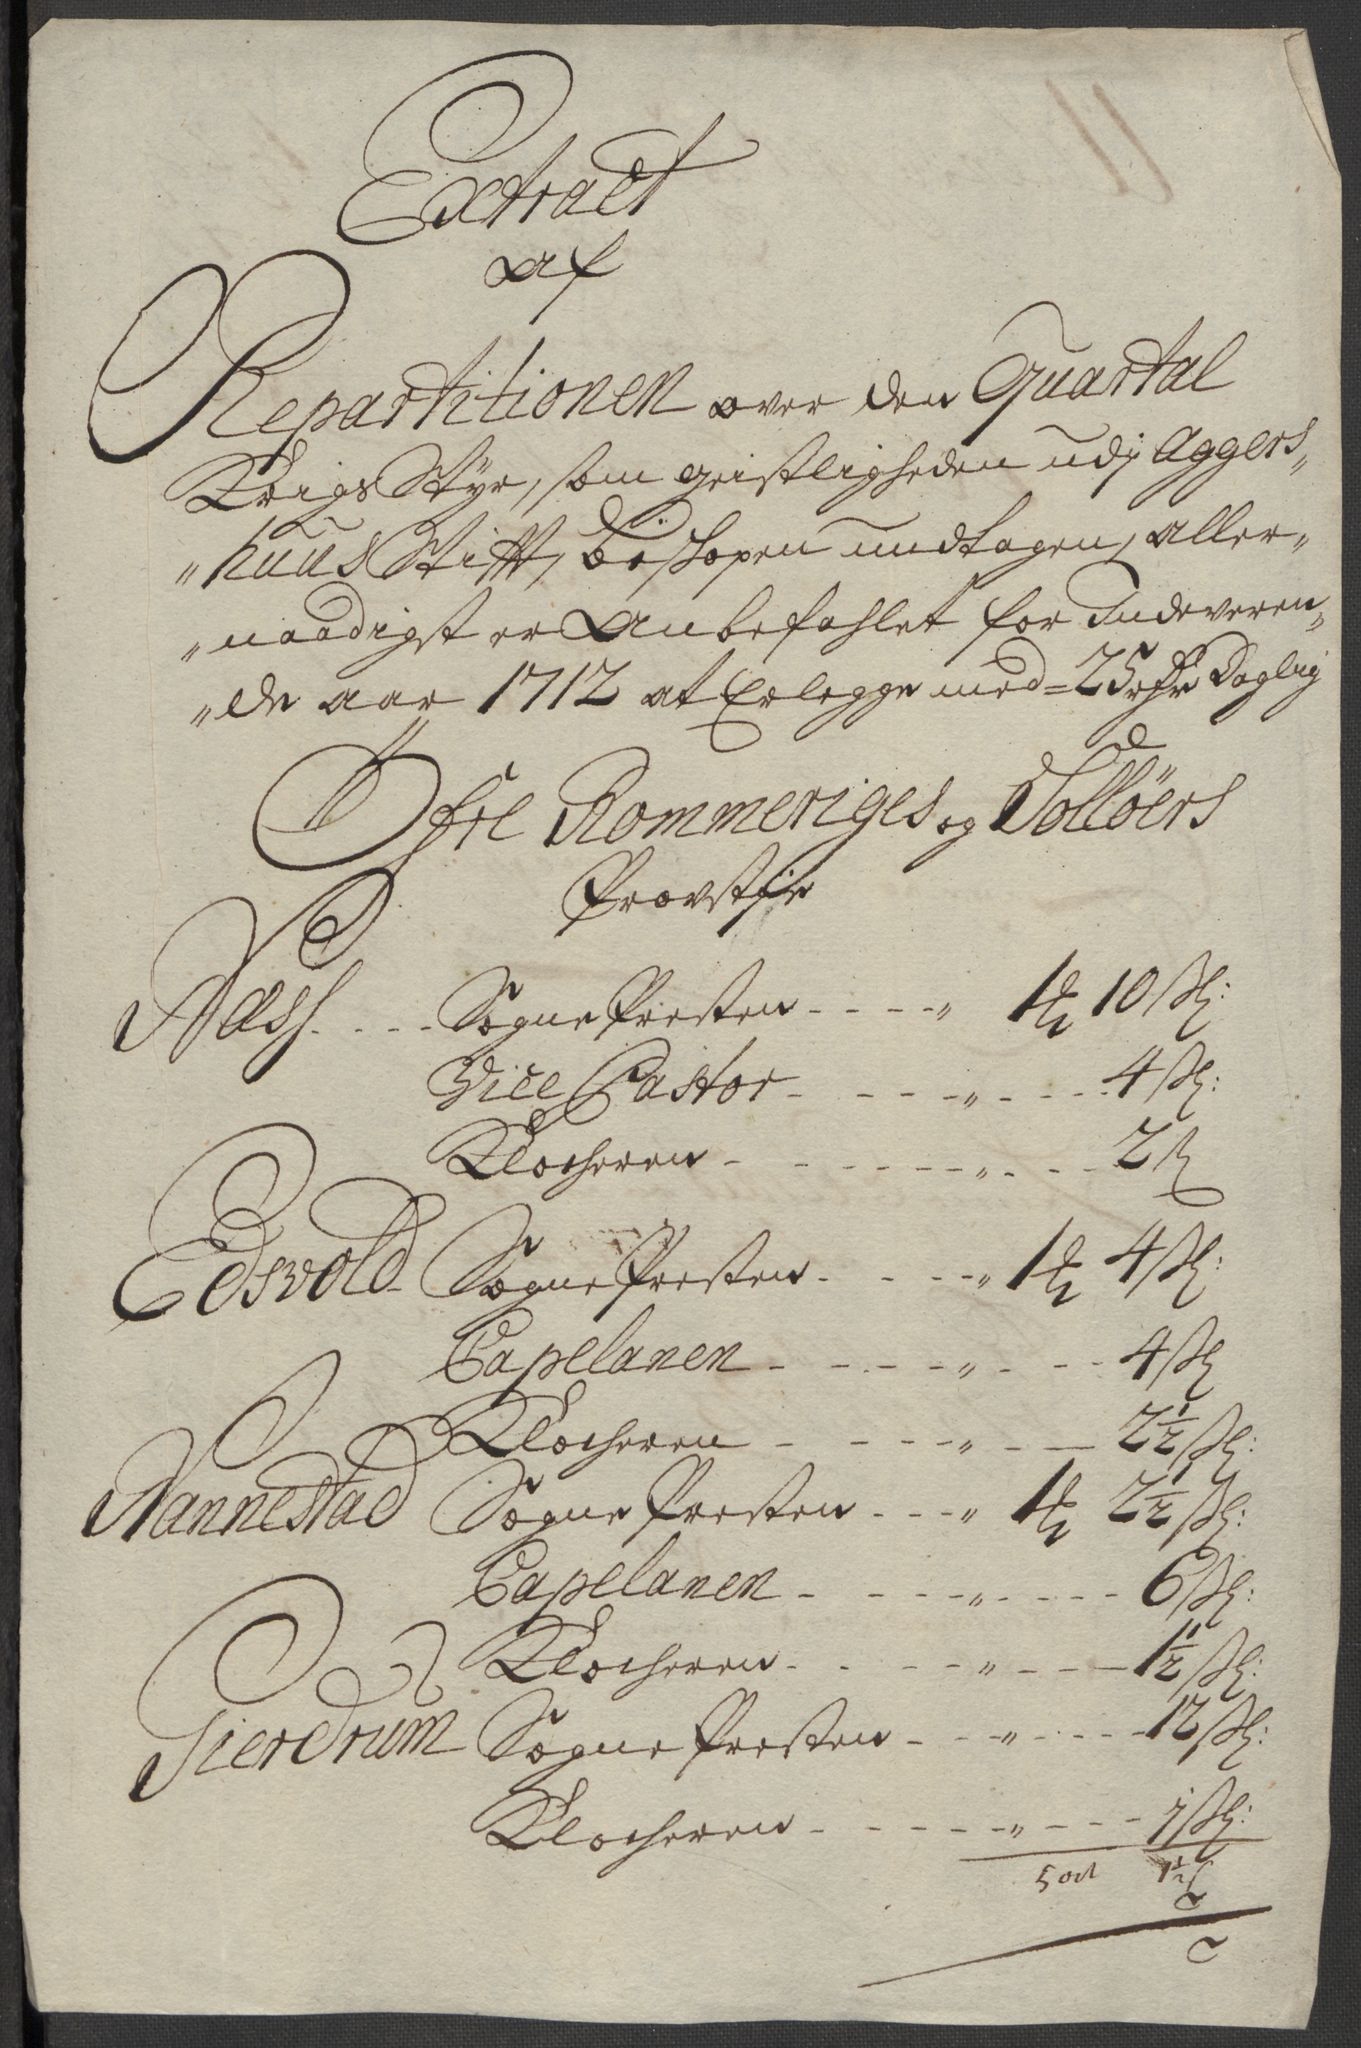 Extract
af
Repartitionen over den Quartal
Krigs Styr, som geistligheden udj Aggers„
„huus Stifft, bischopen undtagen, aller„
„naadigst er Anbefahlet for Indeveren„
„de aar 1712 at Erlegge med = 25 Daglig
Øfre Rommeriges og Solløers
Provstie
Næss. - - - Sogne Presten - - - - „ 1 10 ß:
Vice Pastor - - - - „ - - - - 4 ß:
Klocheren - - - - - - „ - - - 2 ß
Edsvold Sogne Presten. - - - „ 1 4 ß:
Capelanen - - - - - „ - - - 4 ß
Klocheren - - - - „ - - - 2½ ß:
Nannestad Sogne Presten - - - „ 1 2½ ß:
Capelanen - - - - „ - - - - 6 ß:
Klocheren - - - - „ - - - 1½ ß:
Gierdrum Sogne Presten - - - „ - - - - 12 ß:
Klocheren - - - - - „ - - - 1 ß:
5 ort 1½ ß